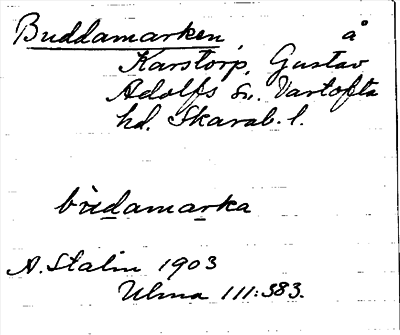 Buddamarken, å
Karstorp, Gustav
Adolfs sn. Vartofta
hd. Skarab. l.
bùdamarka
A. Stalin 1903
Ulma 111:383.